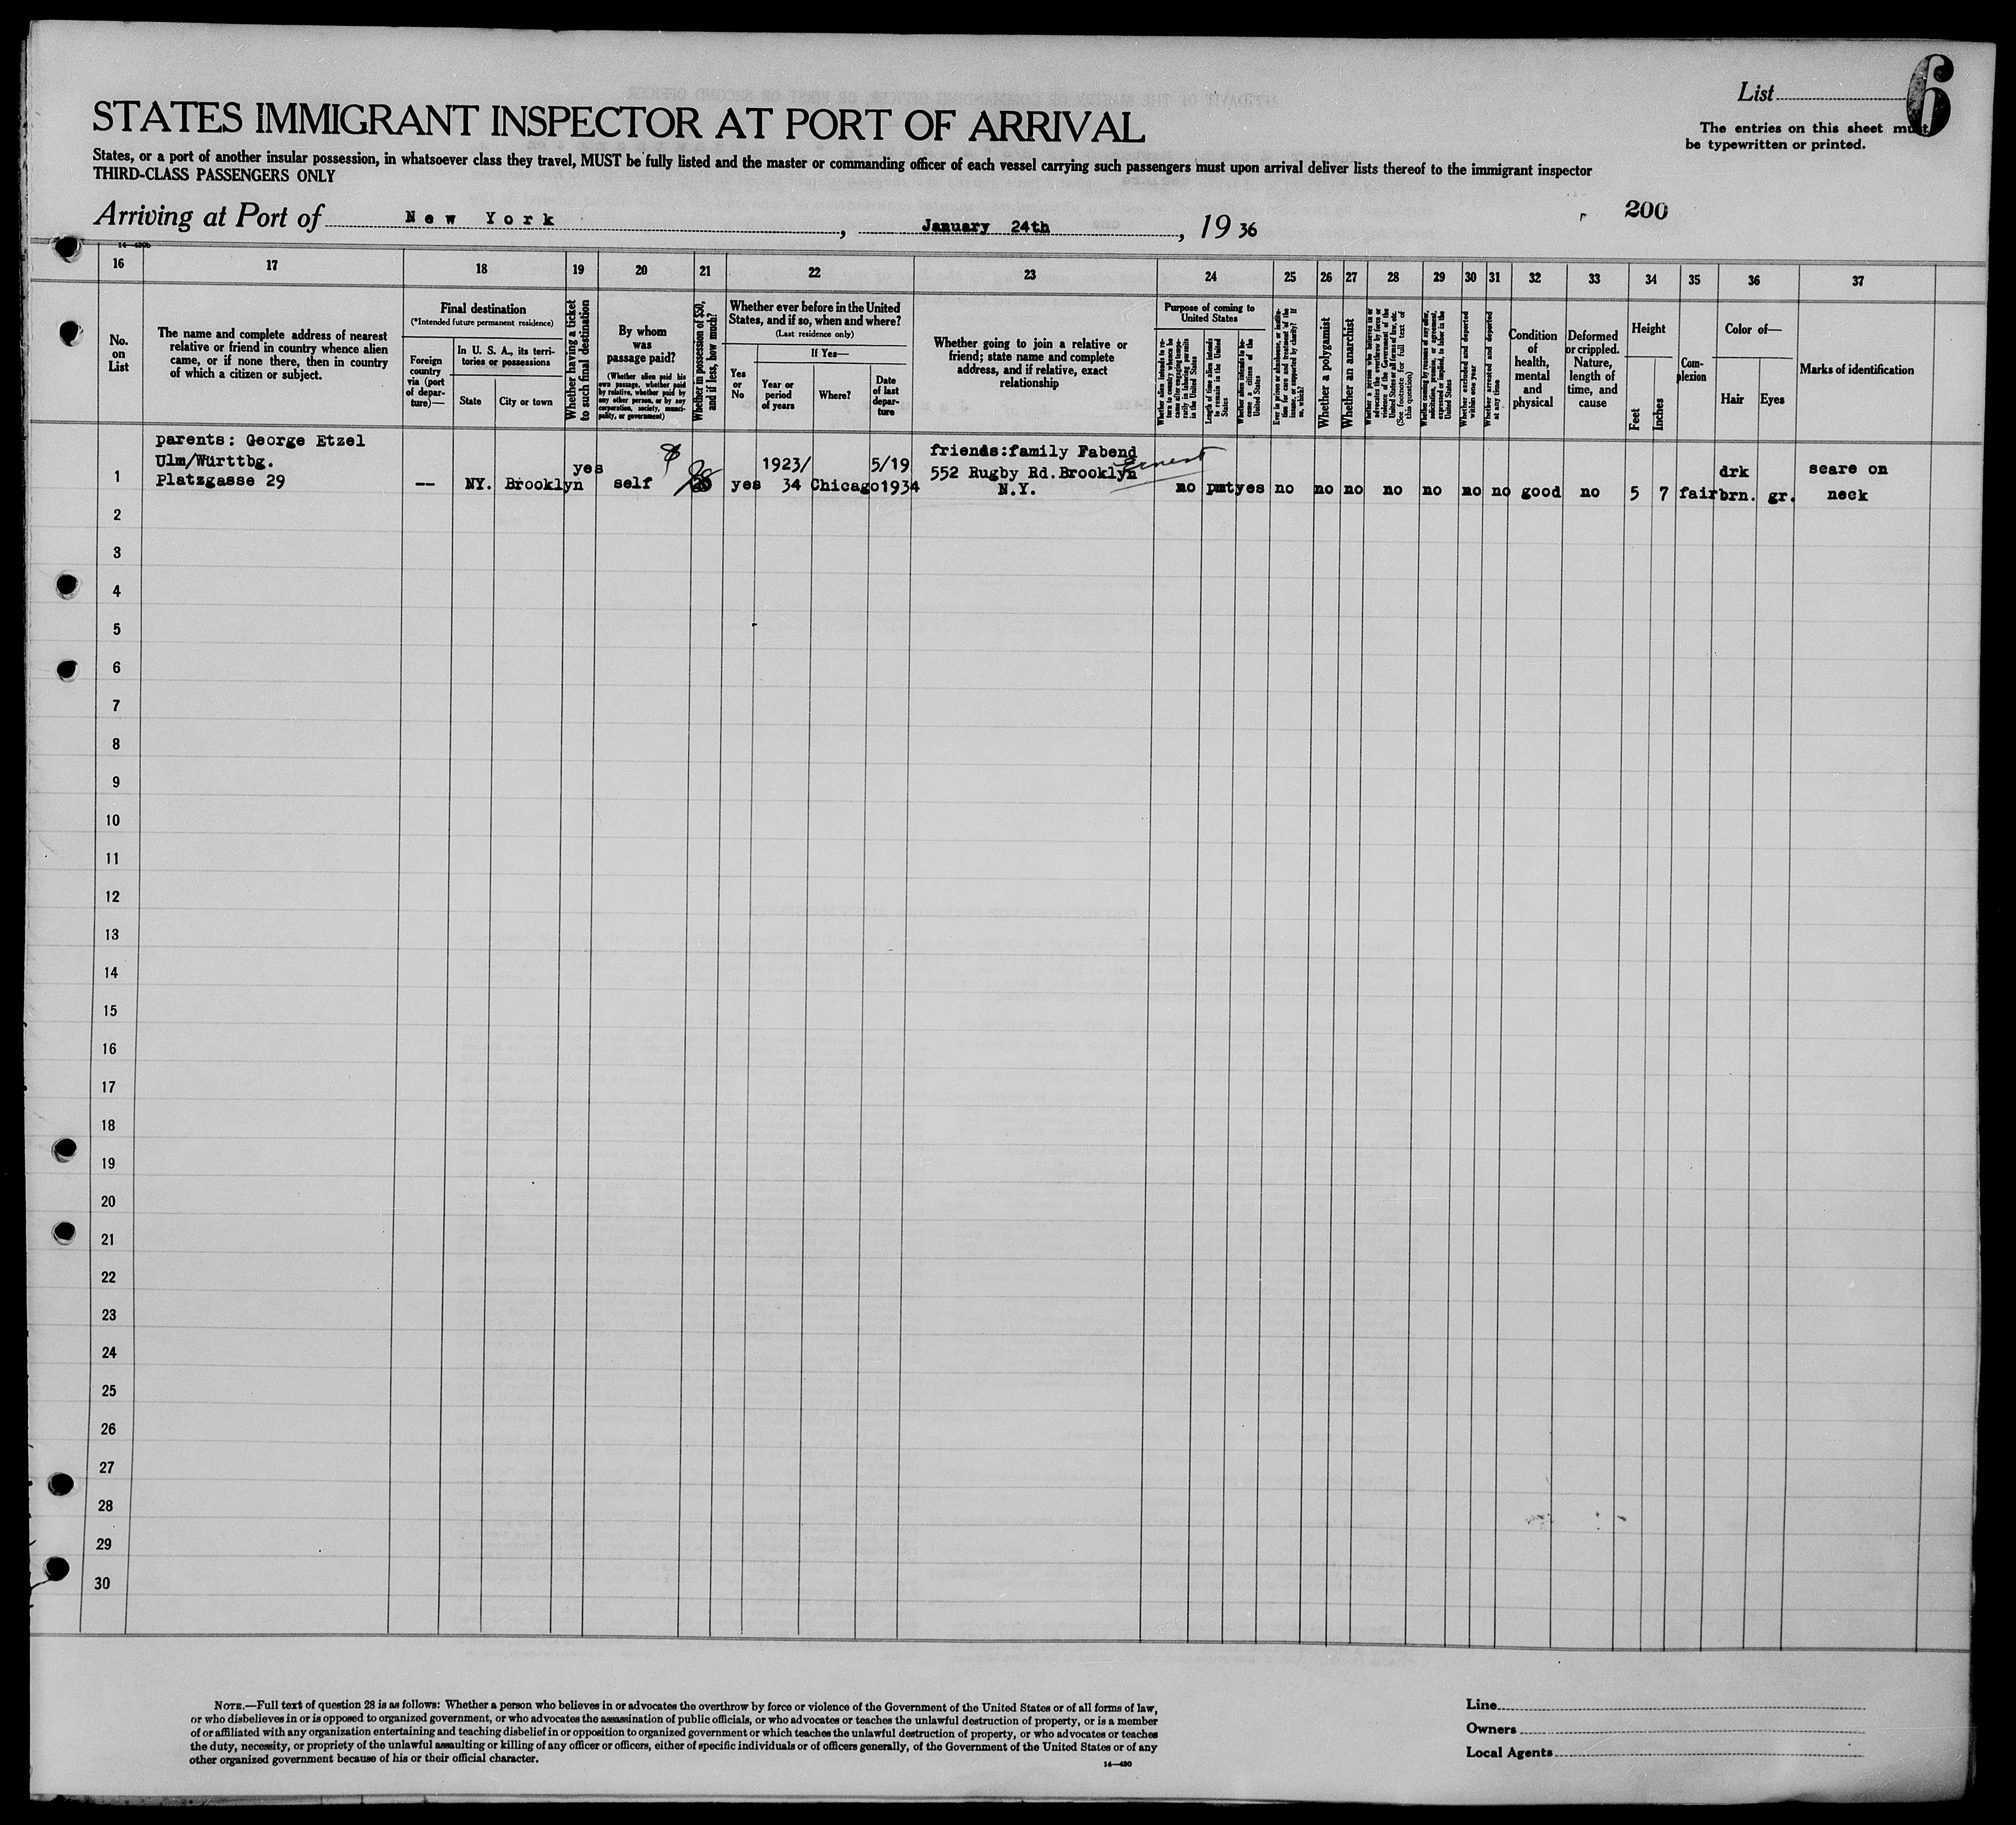 List 6
The entries on this sheet must
be typewritten or printed.
STATES IMMIGRANT INSPECTOR AT PORT OF ARRIVAL
States, or a port of another insular possession, in whatsoever class they travel, MUST be fully listed and the master or commanding officer of each vessel carrying such passengers must upon arrival deliver lists thereof to the immigrant inspector
THIRD-CLASS PASSENGERS ONLY
200
Arriving at Port of New York, January 24th, 19 36
16 17 18 19 20 21 22 23 24 25 26 27 28 29 30 31 32 33 34 35 36 37
No.
on
List
The name and complete address of nearest
relative or friend in country whence alien
came, or if none there, then in country
of which a citizen or subject.
Final destination
(*Intended future permanent residence)
Foreign
country
via (port
of depar-
ture)—
In U. S. A., its terri-
tories or possessions
State
City or town
Whether having a ticket
to such final destination
By whom
was
passage paid?
(Whether alien paid his
own passage, whether paid
by relative, whether paid by
any other person, or by any
corporation, society, munici-
pality, or government)
Whether in possession of $50,
and if less, how much?
Whether ever before in the United
States, and if so, when and where?
(Last residence only)
Yes
or
No
If Yes—
Year or
period
of years
Where?
Date
of last
depar-
ture
Whether going to join a relative or
friend; state name and complete
address, and if relative, exact
relationship
Purpose of coming to
United States
Whether alien intends to re-
turn to country whence he
came after engaging tempo-
rarily in laboring pursuits
in the United States
Length of time alien intends
to remain in the United
States
Whether alien intends to be-
come a citizen of the
United States
Ever in prison or almshouse, or institu-
tion for care and treatment of the
insane, or supported by charity? If
so, which?
Whether a polygamist
Whether an anarchist
Whether a person who believes in or
advocates the overthrow by force or
violence of the Government of the
United States or all forms of law, etc.
(See footnote for full text of
this question)
Whether coming by reason of any offer,
solicitation, promise, or agreement,
expressed or implied, to labor in the
United States
Whether excluded and deported
within one year
Whether arrested and deported
at any time
Condition
of
health,
mental
and
physical
Deformed
or crippled.
Nature,
length of
time, and
cause
Height
Feet
Inches
Com-
plexion
Color of—
Hair
Eyes
Marks of identification
parents: George Etzel
Ulm/Württbg.
1 Platzgasse 29
-- NY. Brooklyn
yes
self
$
yes
1923/
34
Chicago
5/19
1934
friends:family Fabend
Ernest
552 Rugby Rd. Brooklyn
N.Y.
no pmt yes no no no no no no no good no 5 7 fair
drk
brn. gr.
scare on
neck
2
3
4
5
6
7
8
9
10
11
12
13
14
15
16
17
18
19
20
21
22
23
24
25
26
27
28
29
30
NOTE.—Full text of question 28 is as follows: Whether a person who believes in or advocates the overthrow by force or violence of the Government of the United States or of all forms of law,
or who disbelieves in or is opposed to organized government, or who advocates the assassination of public officials, or who advocates or teaches the unlawful destruction of property, or is a member
of or affiliated with any organization entertaining and teaching disbelief in or opposition to organized government or which teaches the unlawful destruction of property, or who advocates or teaches
the duty, necessity, or propriety of the unlawful assaulting or killing of any officer or officers, either of specific individuals or of officers generally, of the Government of the United States or of any
other organized government because of his or their official character.
14—430
Line
Owners
Local Agents